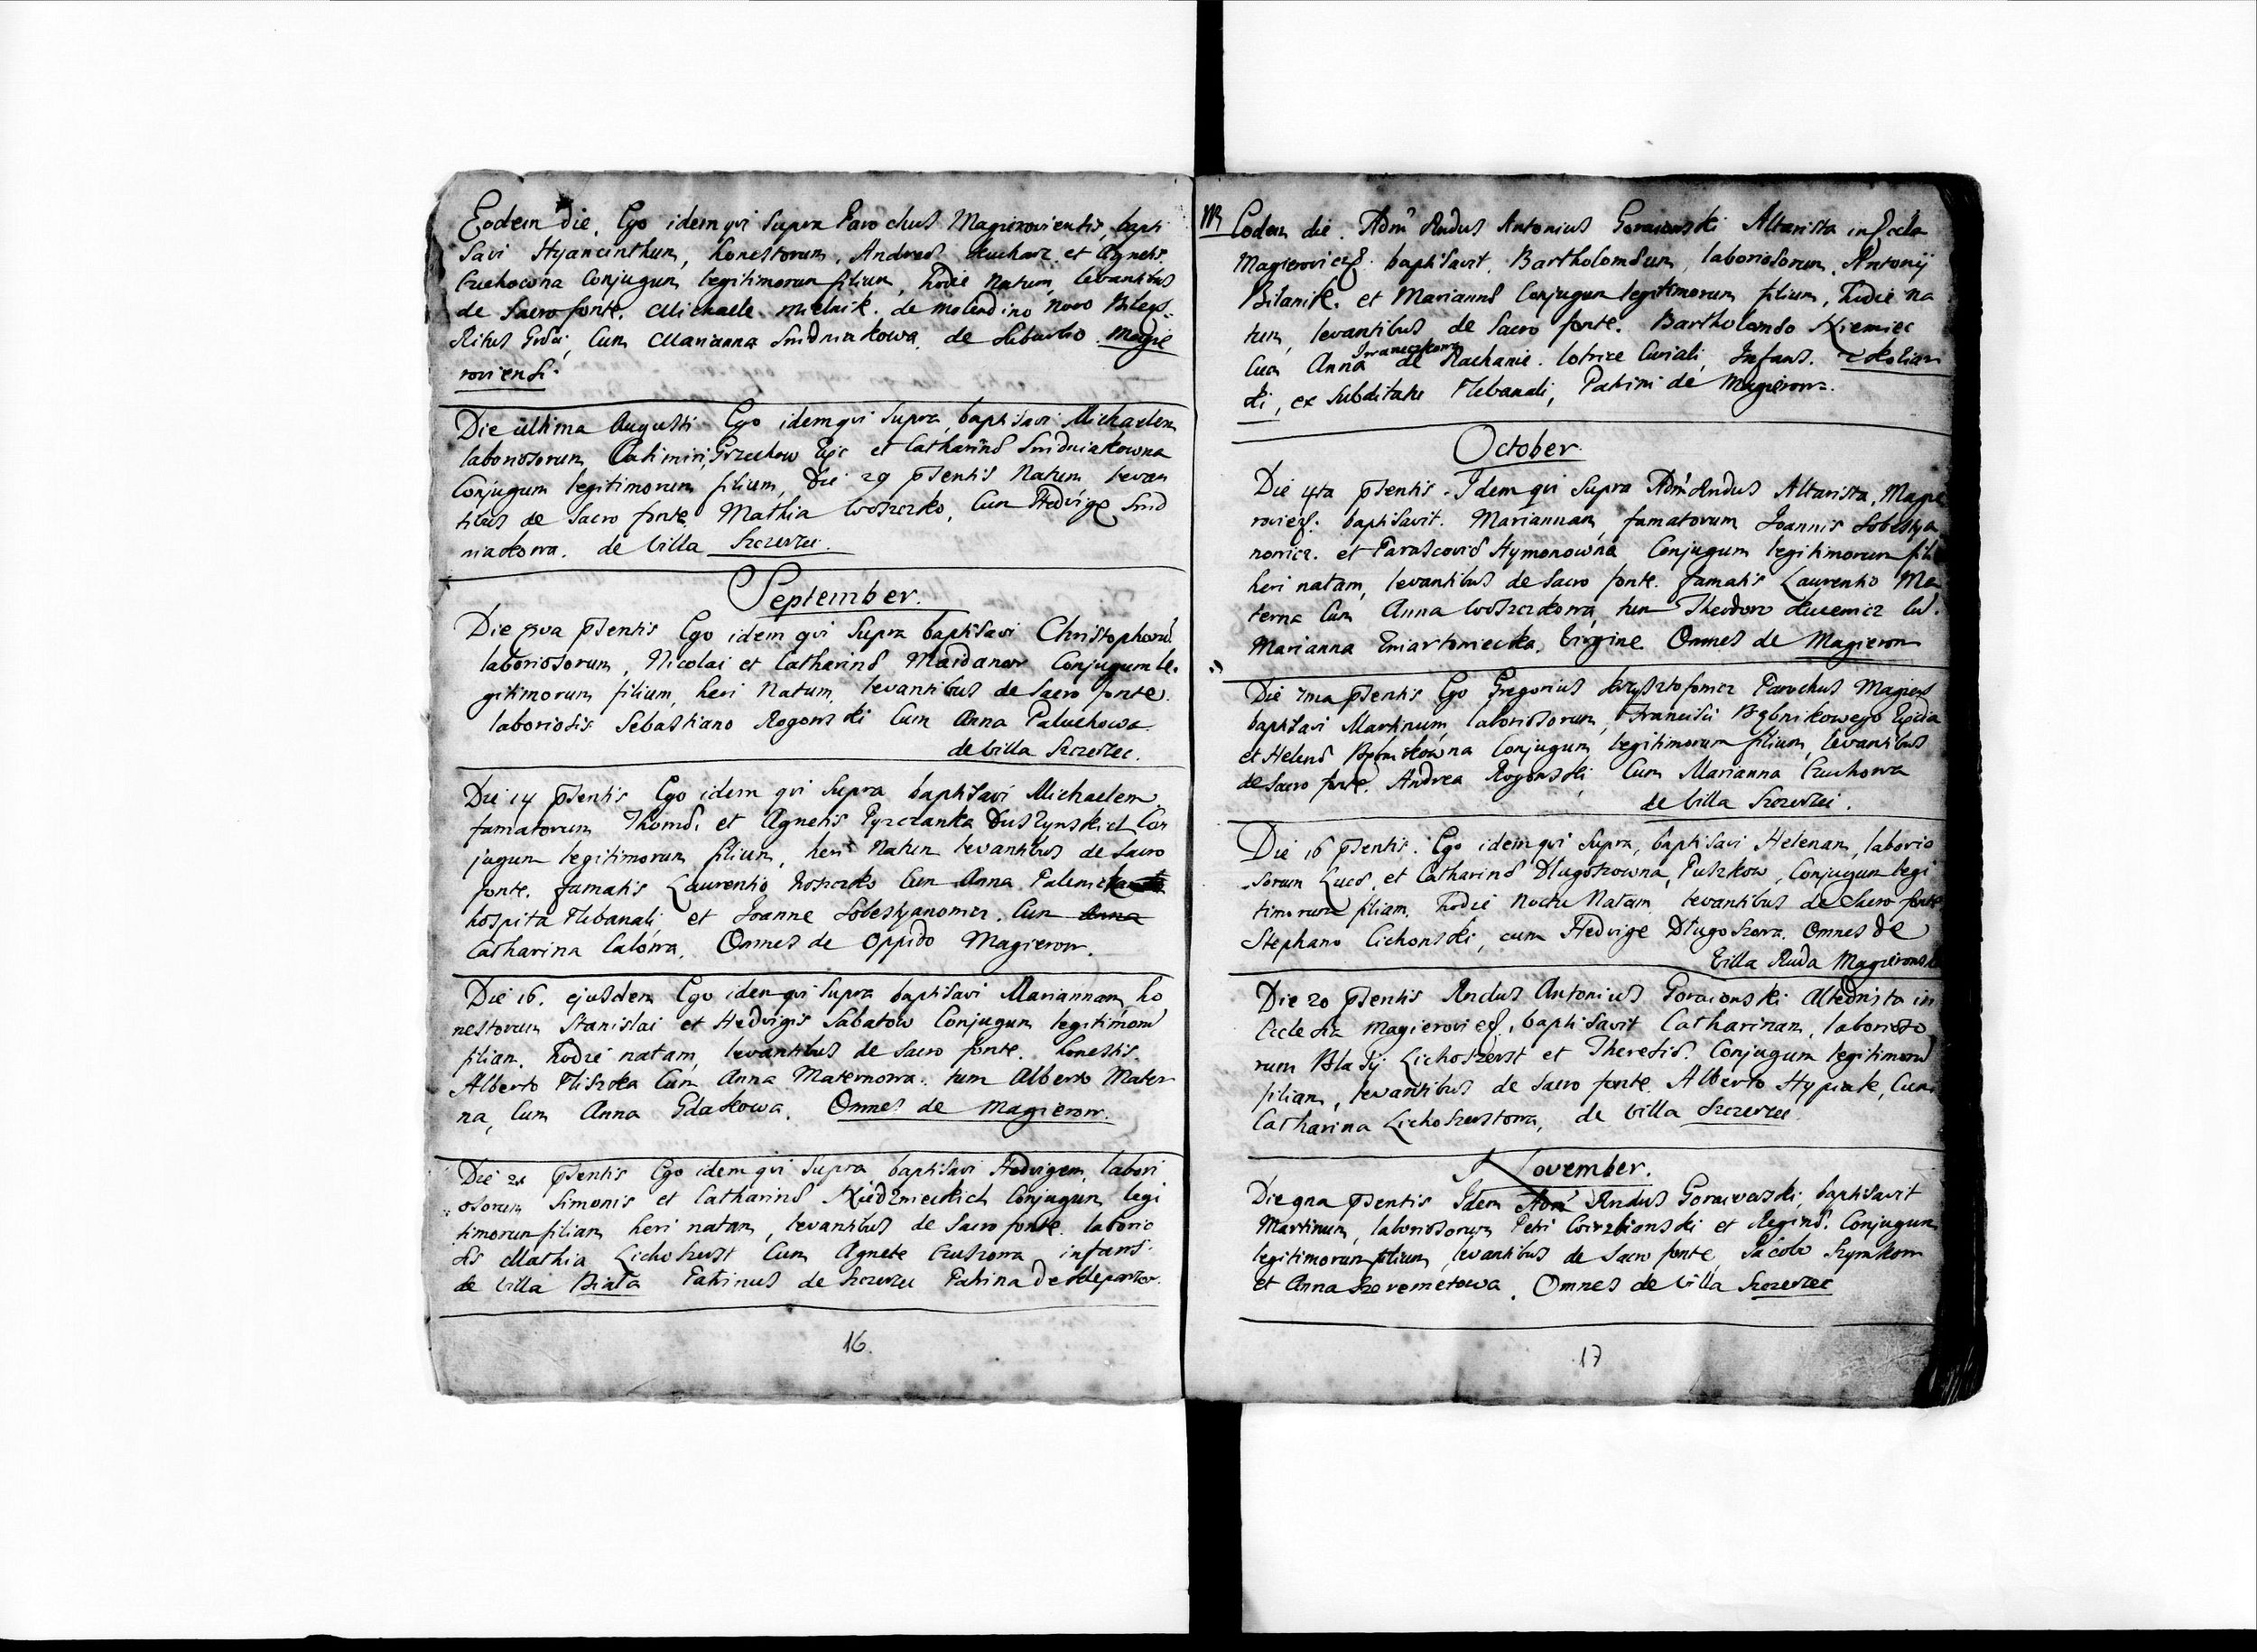 Eodem die, Ego idem qui supra Parochus Magieroviensis, bapti
savi Hyancinthum, honestorum, Andreæ Kucharz et Agnetis
Czuchowna Conjugum legitimorum filium, hodie Natum, levantibus
de Sacro fonte. Michaele Mielnik. de molendino Novo
Ritus Græci, Cum Marianna Snidniakowa, de Suburbio Magie
roviensi.
Die ultima Augusti Ego idem qui supra, baptisavi Michaelem
laboriosorum, Casimiri, Grzechow et Catharinæ Snidniakowna
Conjugum legitimorum filium, Die 29 pñsentis Natum levan
tibus de Sacro fonte. Mathia Woszczko, Cum Hedvige Snid
niakowa. de Villa Szczerzec.
September.
Die 9va pñsentis Ego idem qui Supra baptisavi Christophorũ
laboriosorum, Nicolai et Catharinæ Maidanow Conjugum le-
gitimorum filium, heri Natum, levantibus de Sacro fonte.
laboriosis Sebastiano Rogowski Cum Anna Paluchowa
de Villa Szczerzec.
Die 14 pñsentis Ego idem qui Supra baptisavi Michaelem
famatorum Thomæ et Agnetis Pyrczanka Duszynskich Con
jugum legitimorum filium, heri Natum levantibus de Sacro
fonte. famatis Laurentio Woszczko Cum Anna
hospita Plebanali et Joanne Sobestyanowicz. Cum Anna
Catharina Calowa, Omnes de Oppido Magierow.
Die 16. ejusdem Ego idem qui Supra baptisavi Mariannam, ho
nestorum Stanislai et Hedvigis Sabatow Conjugum legitimorũ
filiam. hodie natam, levantibus de Sacro fonte. honestis
Alberto Fliszka Cum Anna Maternowa. tum Alberto Mater
na, Cum Anna Gdakowa. Omnes de Magierow.
Die 21 pñsentis Ego idem qui Supra baptisavi Hedvigem, labori
osorum Simonis et Catharinæ Niedznieckich Conjugum legi
timorum filiam heri natam, levantibus de Sacro fonte laborio
sis Mathia Lichoszerst Cum Agnete infans
de Villa Biała Patrinus de Szczerzec Patrina de
16.
NB Eodem die. Adm Rndus Antonius Goraiowski Altarista in Eccla
Magierovien. baptisavit. Bartholomæum, laboriosorum. Antonij
Bilanik. et Mariannæ Conjugum legitimorum filium, hodie na
tum, levantibus de Sacro fonte. Bartholomæo Niemiec
Iwaneczkowa
Cum Anna de Rachanie. lotrice Curiali, Infans.
ki, ex Subditatu Plebanali, Patrini de Magierowa.
October.
Die 4ta pñsentis. Idem qui Supra Adm Rndus Altarista, Magie
rovien. baptisavit. Mariannam, famatorum Joannis Sobestya
nowicz. et Parascoviæ Hymonowna Conjugum legitimorum fili
heri natam, levantibus de Sacro fonte. famatis Laurentio Ma
terna Cum Anna Woszczkowa, tum Theodoro cu.
Marianna Virgine Omnes de Magierow
Die 7ma pñsentis Ego Gregorius Krzysztofowicz Parochus Magierov
baptisavi Martinum, laboriosorum, Francisci Bębnikowego
et Helenæ Bębnikowna Conjugum legitimorum filium, levantibus
de Sacro fonte. Andrea Rogowski, Cum Marianna Czuchowa
de Villa Szczerzec.
Die 16 pñsentis. Ego idem qui Supra, baptisavi Helenam, laborio
sorum Lucæ, et Catharinæ Dlugoszowna, Puszkow, Conjugum legi
timorum filiam. hodie Noctu Natam levantibus de Sacro fonte
Stephano Cichonski, cum Hedvige Dlugoszowa. Omnes de
Villa Ruda Magierowsk
Die 20 pñsentis Rndus Antonius Goraiowski Altarista in
Ecclesia Magierovien, baptisavit Catharinam, laborioso
rum Blasij Lichoszerst et Theresiæ. Conjugum legitimorũ
filiam, levantibus de Sacro fonte. Alberto Hypiak, Cum
Catharina Lichoszerstowa, de Villa Szczerzec.
November.
Die 9na pñsentis Idem Adm Rndus Goraiowski, baptisavit
Martinum, laboriosorum Petri Cwirzbianski et Reginæ. Conjugum
legitimorum filium, levantibus de Sacro fonte, Jacobo Szymkow
et Anna Szeremetowa. Omnes de Villa Szczerzec
17